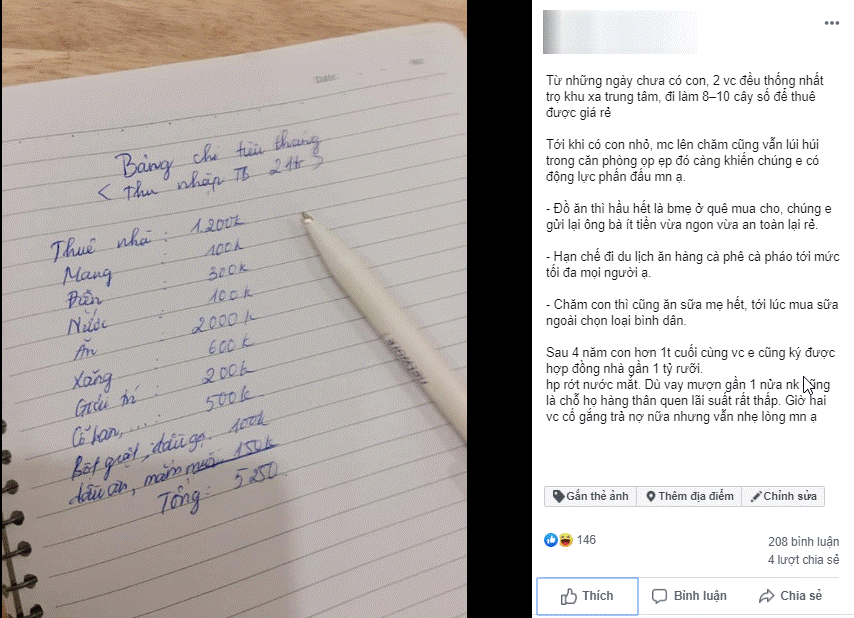 Date:
No:
Bảng chi tiêu tháng
< Thu nhập TB 21tr >
Thuê nhà : 1.200k
Mạng : 100k
Điện : 300k
Nước : 100k
Ăn : 2000k
Xăng : 600k
Giải trí : 200k
Cỗ bàn,... : 500k
Bột giặt, dầu gội 100k
dầu ăn, mắm muối 150k
Tổng: 5250
Từ những ngày chưa có con, 2 vc đều thống nhất
trọ khu xa trung tâm, đi làm 8–10 cây số để thuê
được giá rẻ
Tới khi có con nhỏ, mc lên chăm cũng vẫn lúi húi
trong căn phòng ọp ẹp đó càng khiến chúng e có
động lực phấn đấu mn ạ.
- Đồ ăn thì hầu hết là bmẹ ở quê mua cho, chúng e
gửi lại ông bà ít tiền vừa ngon vừa an toàn lại rẻ.
- Hạn chế đi du lịch ăn hàng cà phê cà pháo tới mức
tối đa mọi người ạ.
- Chăm con thì cũng ăn sữa mẹ hết, tới lúc mua sữa
ngoài chọn loại bình dân.
Sau 4 năm con hơn 1t cuối cùng vc e cũng ký được
hợp đồng nhà gần 1 tỷ rưỡi.
hp rớt nước mắt. Dù vay mượn gần 1 nửa nk cũng
là chỗ họ hàng thân quen lãi suất rất thấp. Giờ hai
vc cố gắng trả nợ nữa nhưng vẫn nhẹ lòng mn ạ
Gắn thẻ ảnh
Thêm địa điểm
Chỉnh sửa
146
208 bình luận
4 lượt chia sẻ
Thích
Bình luận
Chia sẻ